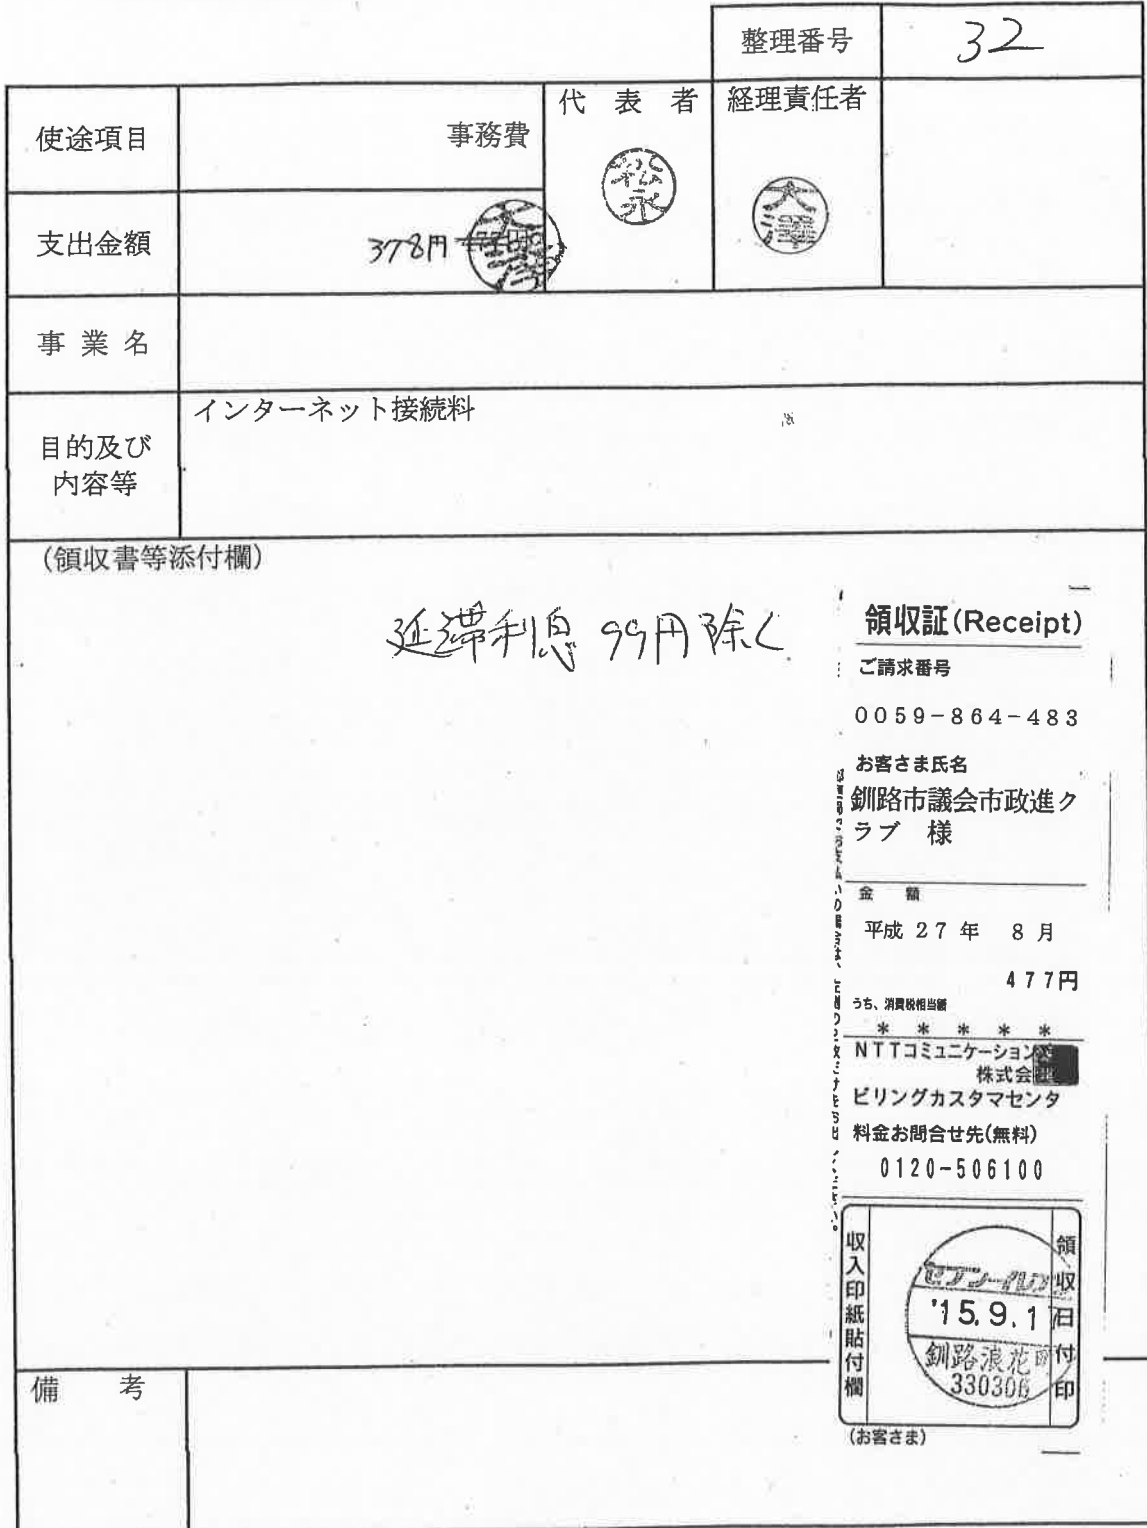 整理番号 32
使途項目 事務費
代表者 経理責任者
松永
大澤
支出金額 378円
大澤
事業名
目的及び
内容等
インターネット接続料
(領収書等添付欄)
延滞利息 99円除く
領収証(Receipt)
ご請求番号
0059-864-483
お客さま氏名
釧路市議会市政進ク
ラブ 様
金 額
平成 27 年 8 月
477円
うち、消費税相当額
* * * * *
NTTコミュニケーション
株式会
ビリングカスタマセンタ
料金お問合せ先(無料)
0120-506100
収入印紙貼付欄
領収日付印
セブン-イレブン
'15.9.1
釧路浪花町
330306
(お客さま)
備 考